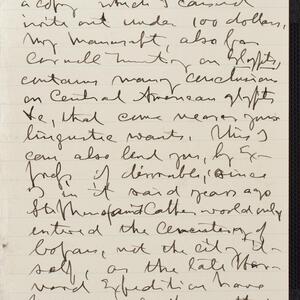 a copy which I caused
write out under 100 dollars.
My manuscript, also from
Cornell hunting on Glypts,
contains many conclusions
on Central American glypts
&c, that come nearer your
linguistic wants. This I
can also lend you, by Ex-
press if desirable, since
in it said years ago
Stephens and Catherwood only
entered the Cemetery of
Copan, not the city it-
self, as the late Har-
vard Expedition have